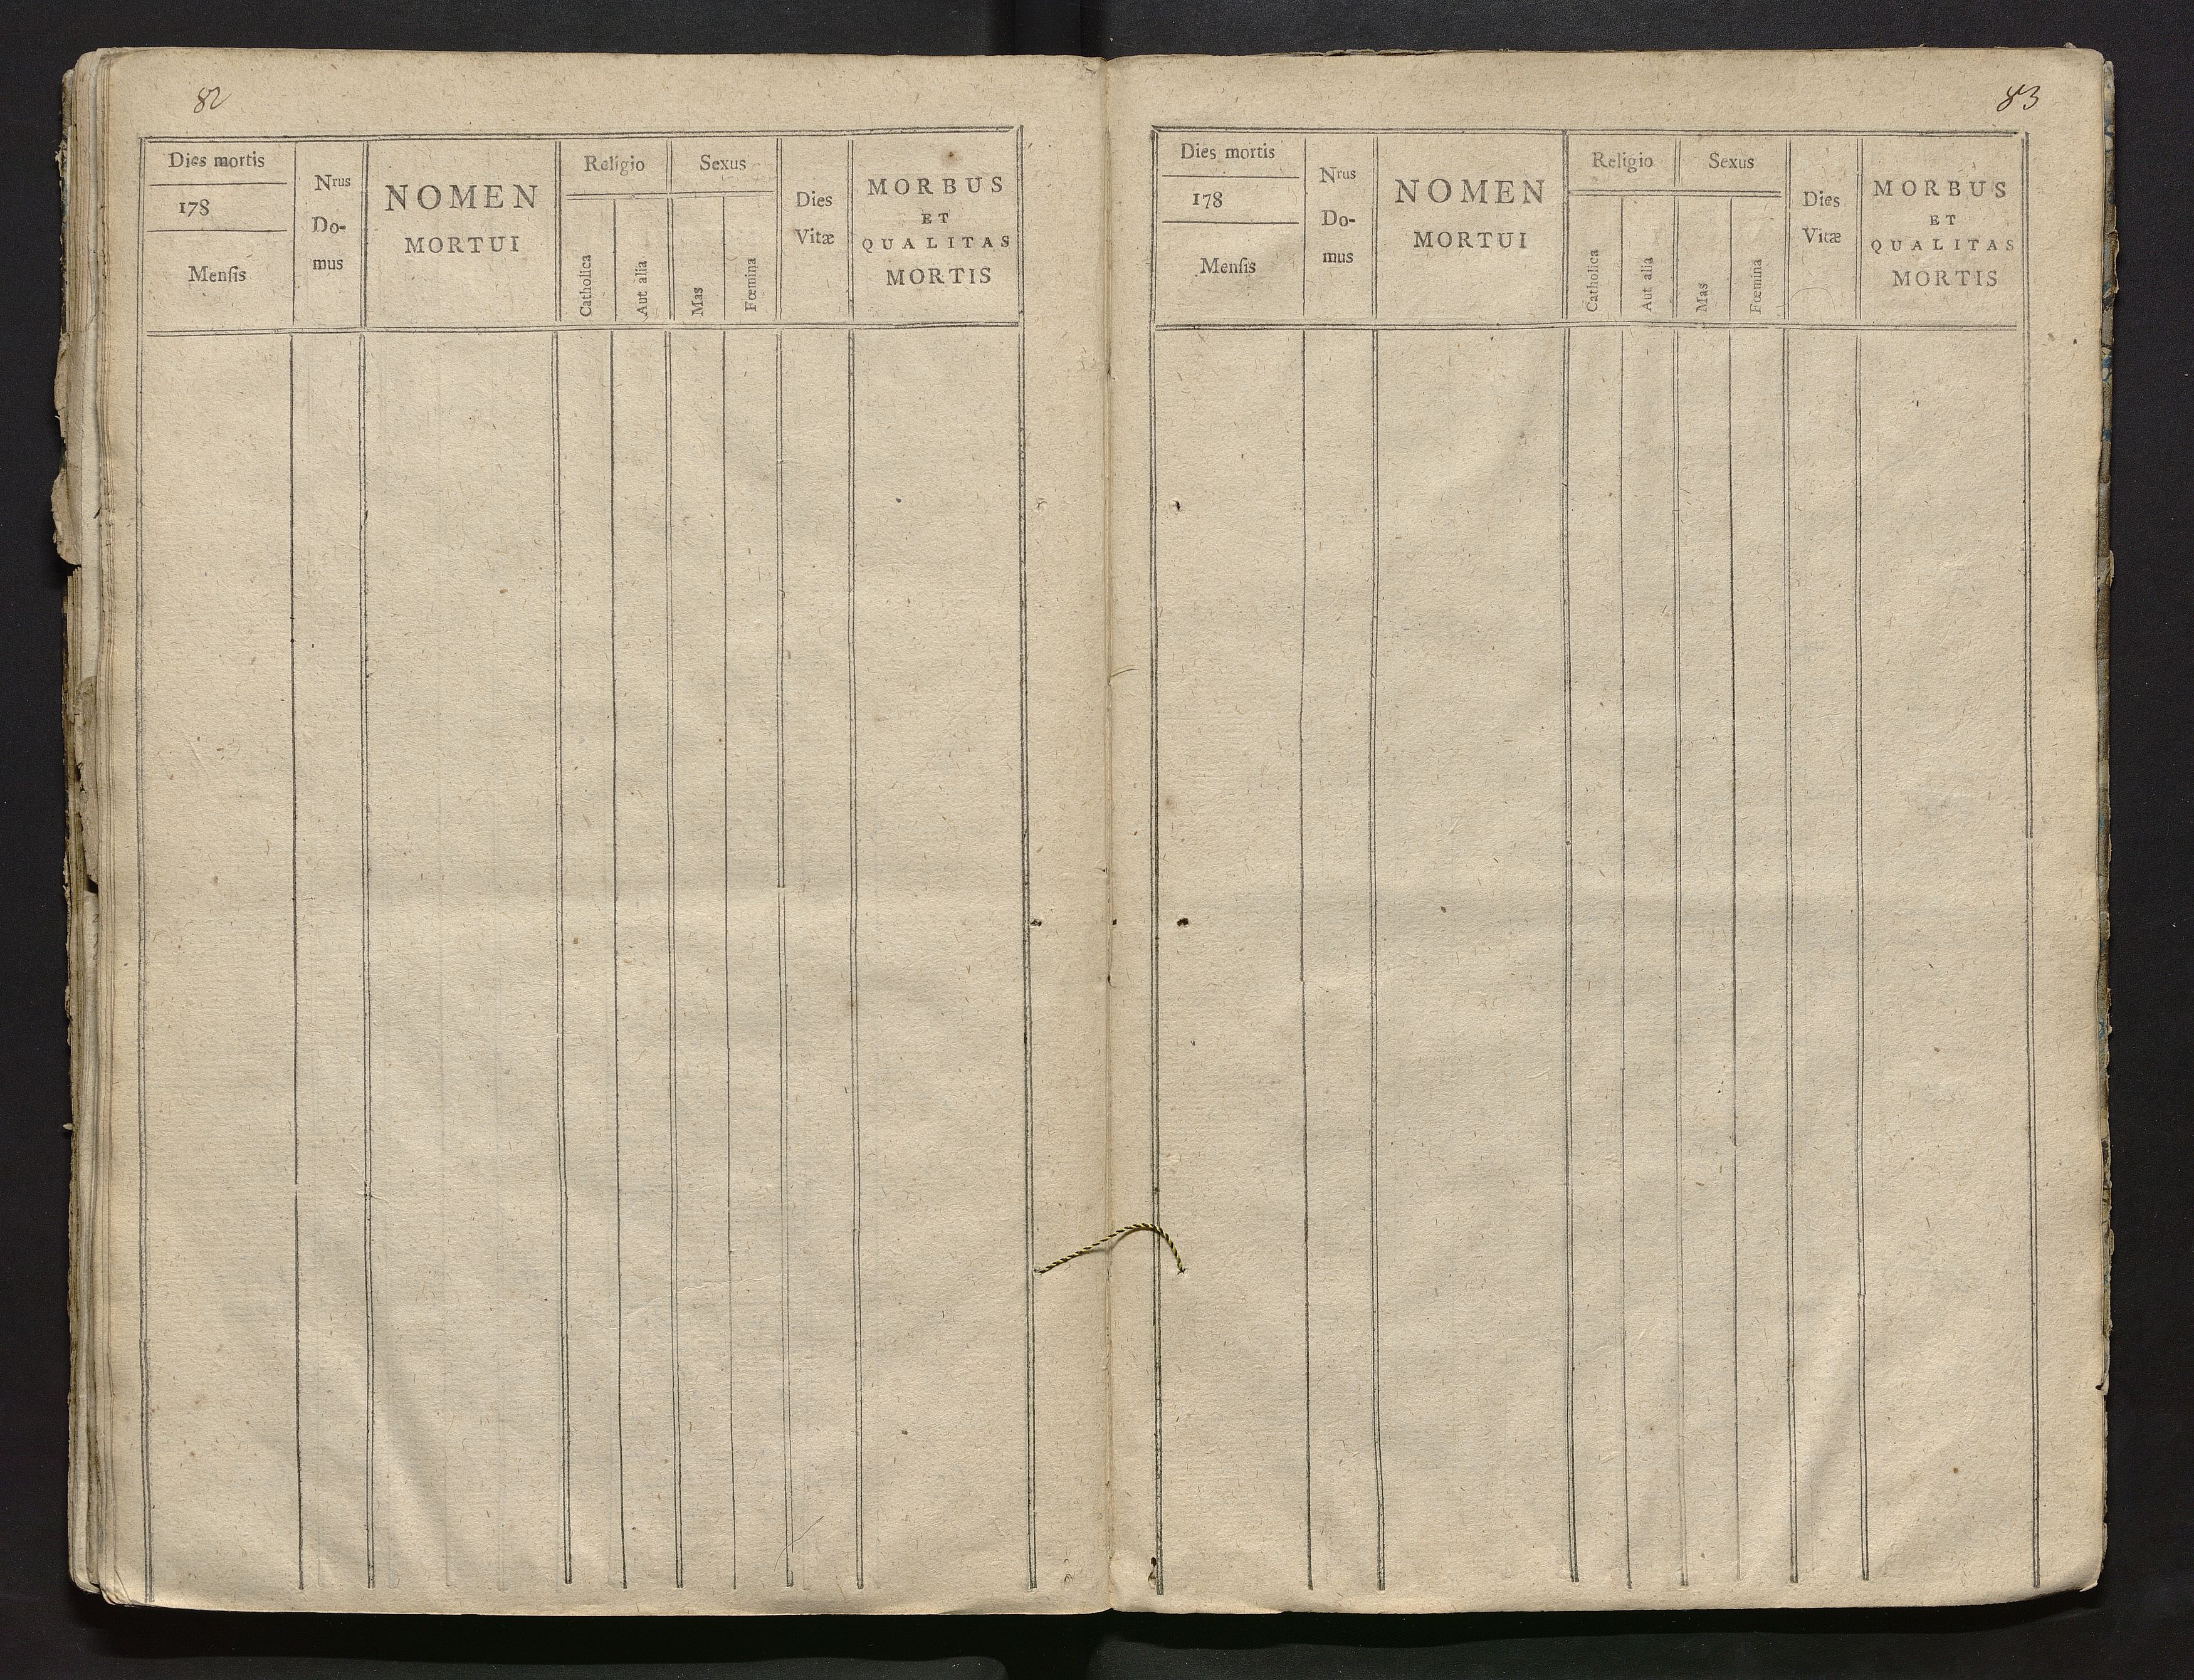 82
Dies mortis
178
Menſis
Nrus
Do-
mus
NOMEN
MORTUI
Religio
Catholica
Aut alia
Sexus
Mas
Fœmina
Dies
Vitæ
MORBUS
ET
QUALITAS
MORTIS
83
Dies mortis
178
Menſis
Nrus
Do-
mus
NOMEN
MORTUI
Religio
Catholica
Aut alia
Sexus
Mas
Fœmina
Dies
Vitæ
MORBUS
ET
QUALITAS
MORTIS